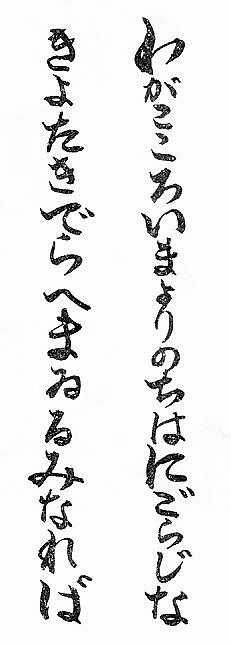 わがこころいまよりのちはにごらじな
きよたきでらへまゐるみなれば